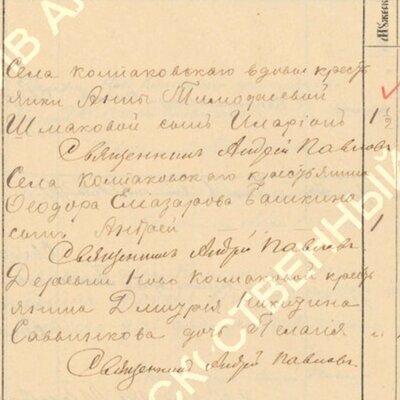 Села Колмаковскаго вдовы кресть
янки Анны Тимофеевой
Шмаковой сынъ Иларіонъ
1 1/2
Священникъ Андрей Павловъ
Села Колмаковскаго крестьянина
Ѳеодора Елазарова Башкина
сынъ Андрей
1
Священникъ Андрей Павловъ
Деревни Ново Колмаковой кресть
янина Димитрія Никитина
дочь Пелагія
Священникъ Андрей Павловъ